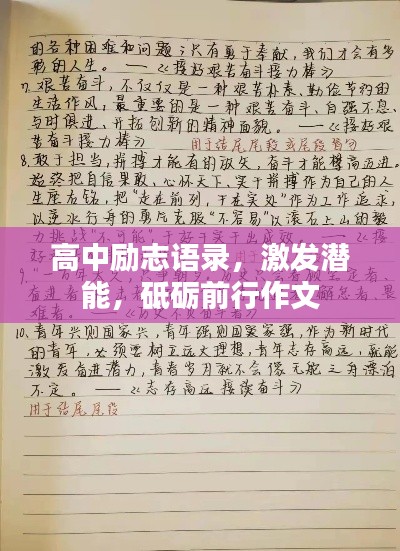 的各种困难和问题；只有勇于奉献，我们才会有多
彩的人生。——《接好艰苦奋斗接力棒》
7. 艰苦奋斗，不仅仅是一种艰苦朴素、勤俭节约的
生活作风，最重要的是一种艰苦奋斗、自强不息、
与时俱进、开拓创新的精神面貌。——《接好艰
苦奋斗接力棒》 用于结尾尾段或尾段首句
8. 敢于担当，拼搏才能有的放矢，奋斗才能攀高迈进。
始终把自信果敢、心怀天下、实于拼搏作为自己的人
生座右铭，把"走在前列，干在实处"作为工作追求，
以逆水行舟的勇气克服"不容易"以滚石上山的毅
力挑战"不可能"
高中励志语录，激发潜
能，砥砺前行作文
10. 青年兴则国家兴，青年强则国家强，作为新时代
的青年，必须要树立远大理想，青年志存高远，就能
激发奋进潜力，青春岁月就不会像无舵之舟漂泊
不定。——《志存高远 接续奋斗》
用于结尾尾段